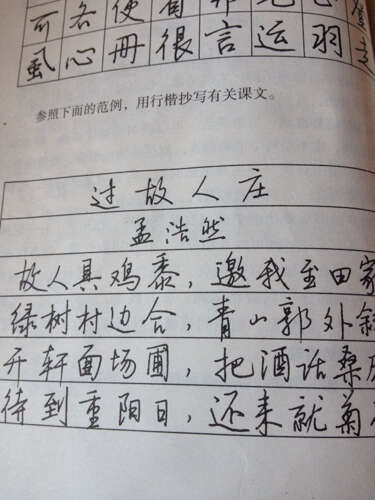 可各使
风心册很言运羽
参照下面的范例，用行楷抄写有关课文。
过故人庄
孟浩然
故人具鸡黍，邀我至田家
绿树村边合，青山郭外斜
开轩面场圃，把酒话桑
待到重阳日，还来就菊